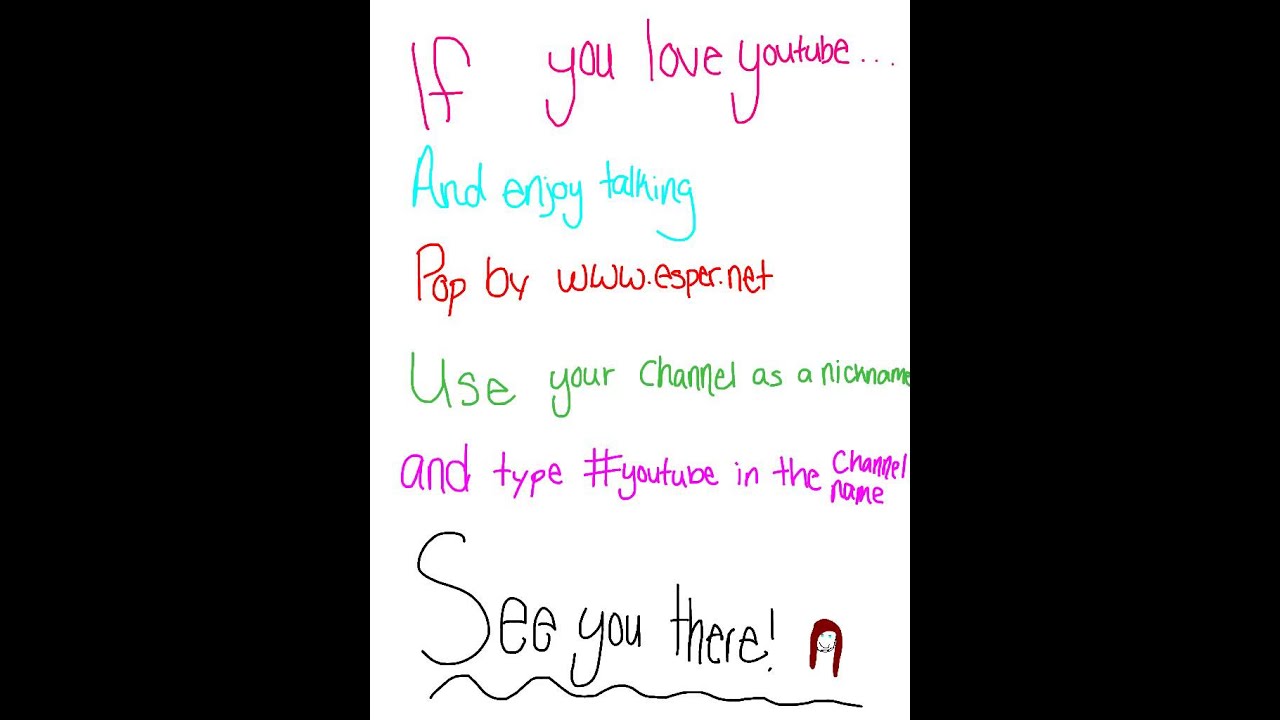 If you love youtube...
And enjoy talking
Pop by www.esper.net
Use your channel as a nickname
and type #youtube in the channel name
See you there!